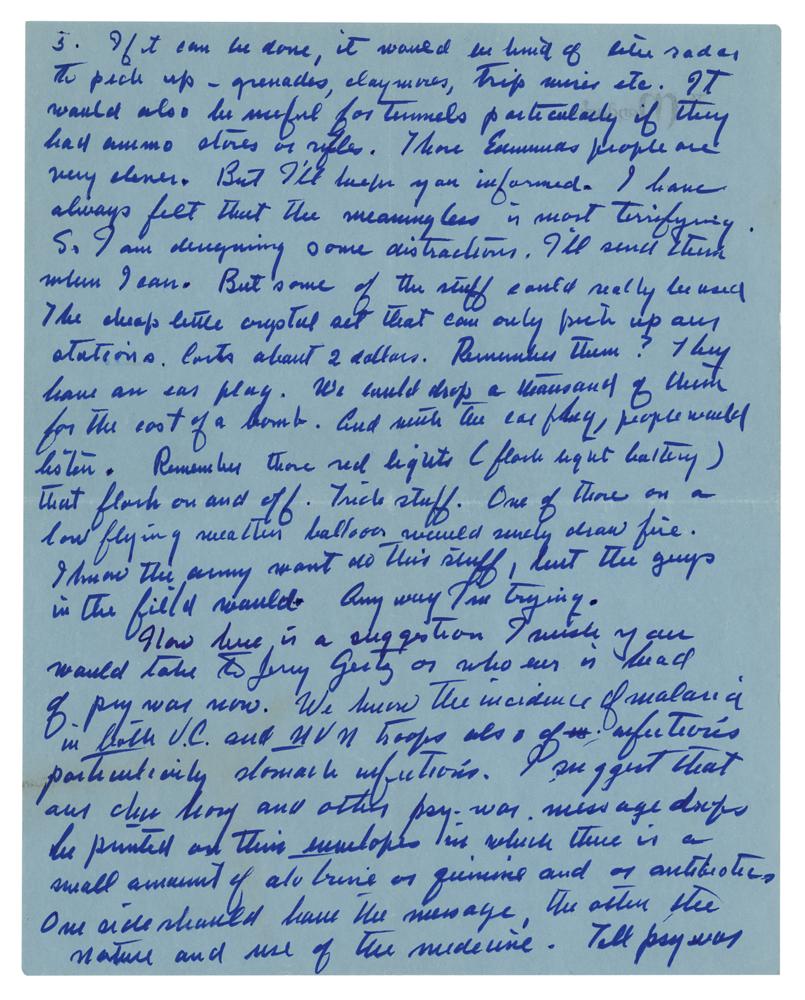 5. If it can be done, it would be kind of like radar
to pick up - grenades, claymores, trip wires etc. It
would also be useful for tunnels particularly if they
had ammo stores or rifles. Those Edmunds people are
very clever. But I'll keep you informed. I have
always felt that the meaningless is most terrifying.
So I am designing some distractions. I'll send them
when I can. But some of the stuff could really be used
The cheap little crystal set that can only pick up our
stations. Costs about 2 dollars. Remember them? They
have an ear plug. We could drop a thousand of them
for the cost of a bomb. And with the ear plug, people would
listen. Remember those red lights (flash light battery)
that flash on and off. Trick stuff. One of those on a
low flying weather balloon would surely draw fire.
I know the army wont do this stuff, but the guys
in the field would. Any way I'm trying.
Now here is a suggestion I wish you
would take to Jerry or who ever is head
of psy war now. We know the incidence of malaria
in both V.C. and NVN troops also of infections
particularly stomach infections. I suggest that
our chu hoy and other psy-war message drops
be printed on thin envelopes in which there is a
small amount of atabrine or quinine and or antibiotics
One side should have the message, the other the
nature and use of the medicine. Tell psy war